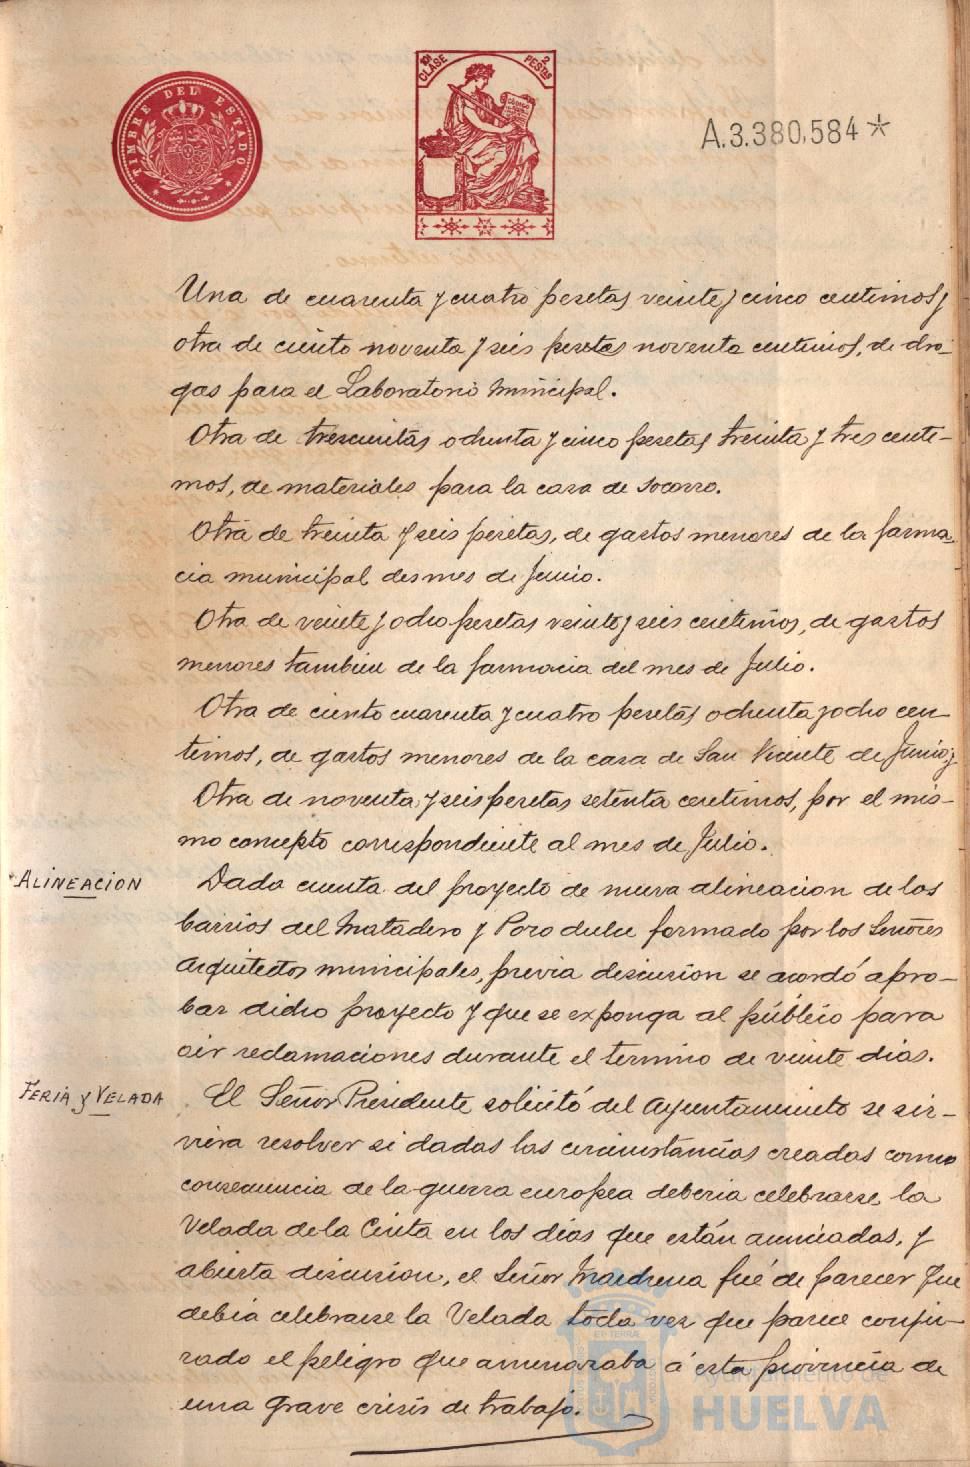 TIMBRE DEL ESTADO
10ª CLASE
2 PESTAS
CÓDIGO
A.3.380,584*
Una de cuarenta y cuatro pesetas veinte y cinco centimos y
otra de ciento noventa y seis pesetas noventa centimos, de dro-
gas para el Laboratorio Municipal.
Otra de trescientas ochenta y cinco pesetas treinta y tres centi-
mos, de materiales para la casa de socorro.
Otra de treinta y seis pesetas, de gastos menores de la farma-
cia municipal des mes de Junio.
Otra de veinte y ocho pesetas veinte y seis centimos, de gastos
menores tambien de la farmacia del mes de Julio.
Otra de ciento cuarenta y cuatro pesetas ochenta y ocho cen
timos, de gastos menores de la casa de San Vicente de Junio; y
Otra de noventa y seis pesetas setenta centimos, por el mis-
mo concepto correspondiente al mes de Julio.
ALINEACION
Dada cuenta del proyecto de nueva alineacion de los
barrios del Matadero y Pozo dulce formado por los Señores
Arquitectos municipales, previa discusion se acordó apro-
bar dicho proyecto y que se exponga al público para
oir reclamaciones durante el termino de veinte dias.
FERIA y VELADA
El Señor Presidente solicitó del Ayuntamiento se sir-
viera resolver si dadas las circunstancias creadas como
consecuencia de la guerra europea deberia celebrarse la
Velada de la Cinta en los dias que están anunciadas, y
abierta discusion, el Señor Machena fué de parecer que
debia celebrarse la Velada toda vez que parece conju-
rado el peligro que amenazaba á esta provincia de
una grave crisis de trabajo.
Ayuntamiento de
HUELVA